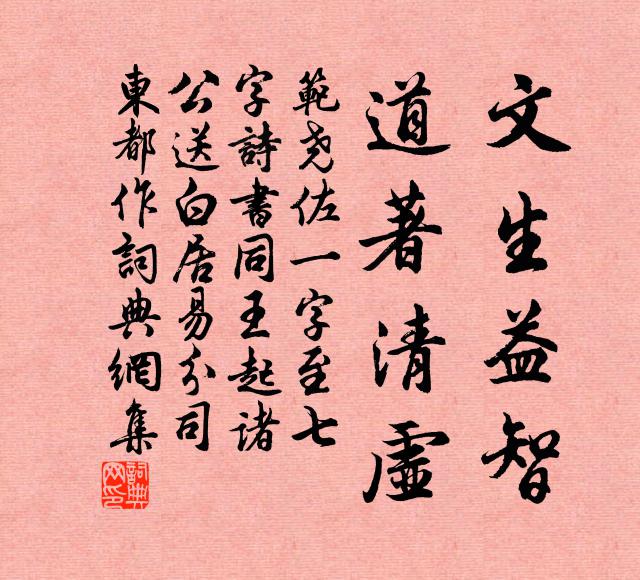 文生益智
道著清虛
範堯佐一字至七
字詩書同王起諸
公送白居易分司
東都作詞典網集
詞典網印